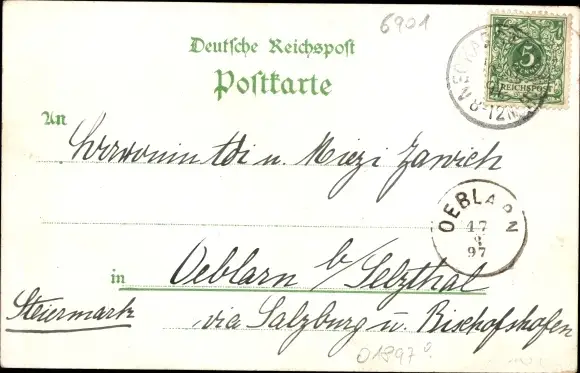 6901
Deutsche Reichspost
Postkarte
5
PFENNIG
REICHSPOST
8-12N
An
u. Miezi Zawich
OEBLARN
17
97
in Oeblarn b/Selzthal
Steiermark
via Salzburg u. Bischofshofen
01897